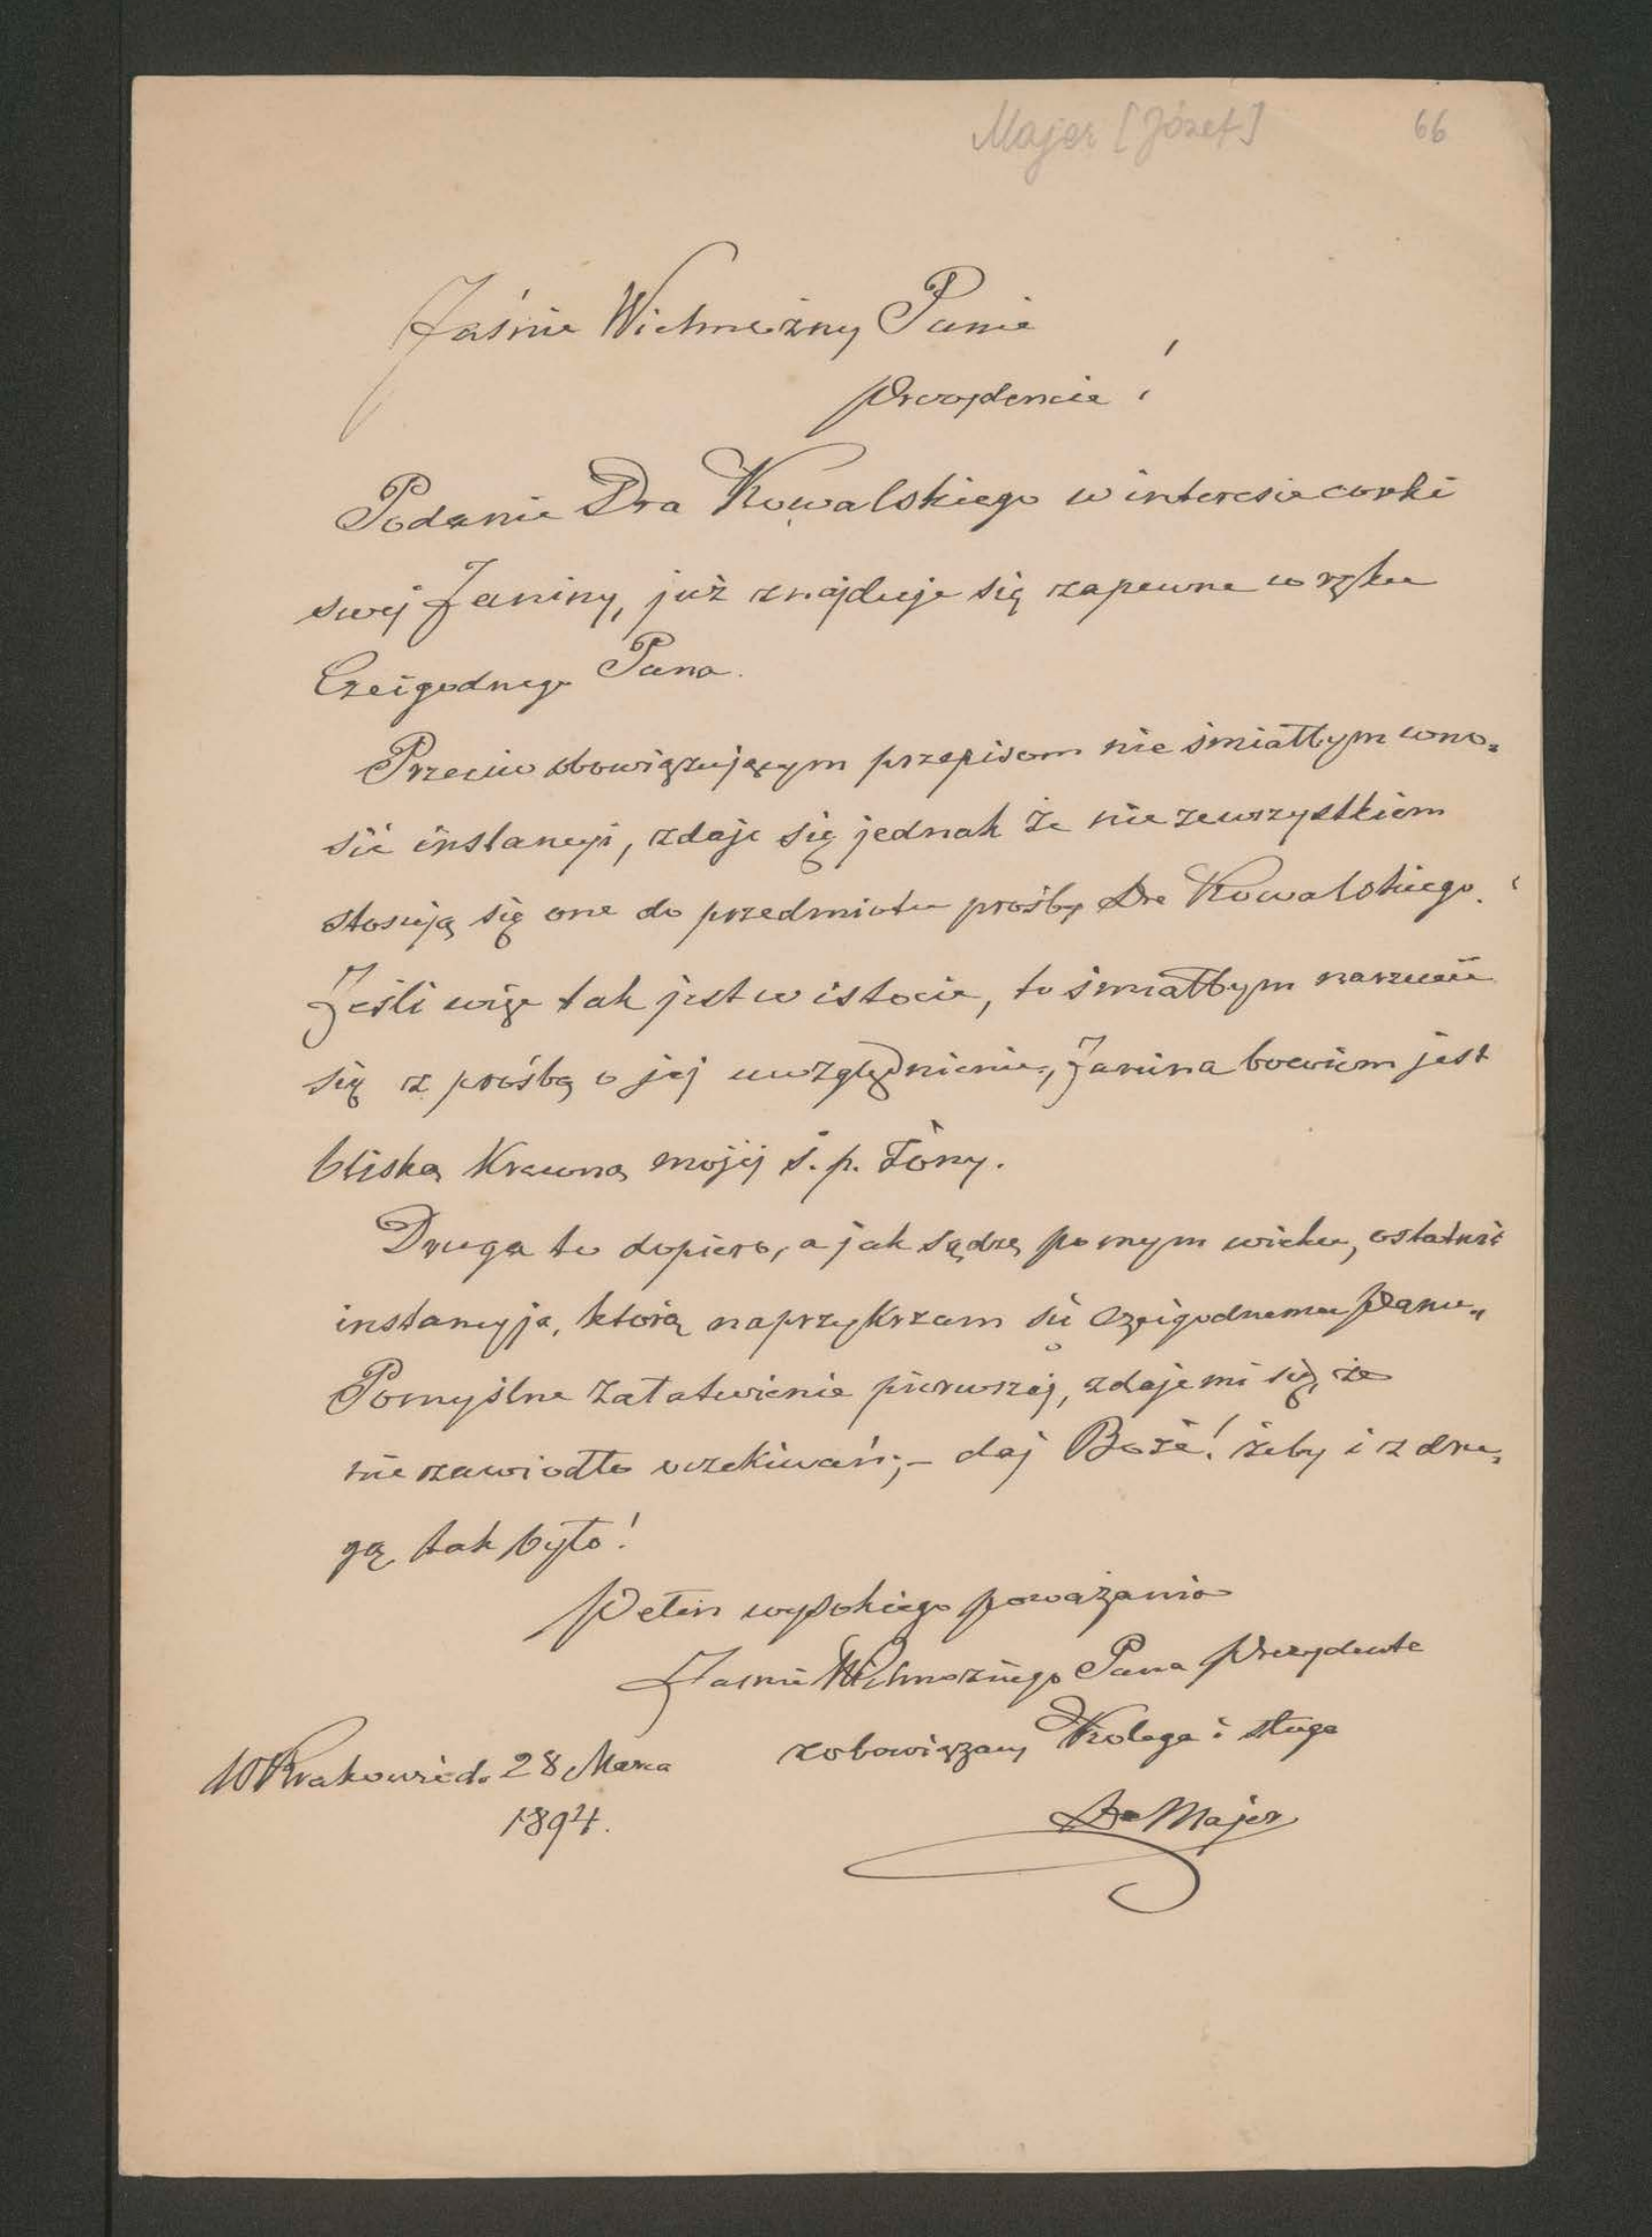 Majer [Józef] 66
Jaśnie Wielmożny Panie
Prezydencie!
Podanie Dra Kowalskiego w interesie corki
swej Janiny, już znajduje się zapewne w ręku
Czcigodnego Pana.
Przeciw obowiązującym przepisom nie śmiałbym wno=
sić instancyi, zdaje się jednak że nie zewszystkiem
stosują się one do przedmiotu prośby Dra Kowalskiego.
Jeśli więc tak jest w istocie, to śmiałbym narzucić
się z prośbą o jej uwzględnienie, Janina bowiem jest
bliską Krewną mojéj ś. p. Żony.
Druga to dopiero, a jak sądzę po mym wieku, ostatnia
instancyja, którą naprzykrzam się Czcigodnemu Panu.
Pomyślne załatwienie pierwszej, zdaje mi się, że
nie zawiodło oczekiwań; – daj Boże! żeby i z dru=
gą tak było!
Pełen wysokiego poważania
Jaśnie Wielmożnego Pana Prezydenta
zobowiązany Kolega i sługa
W Krakowie d. 28 Marca
1894.
Dr Majer